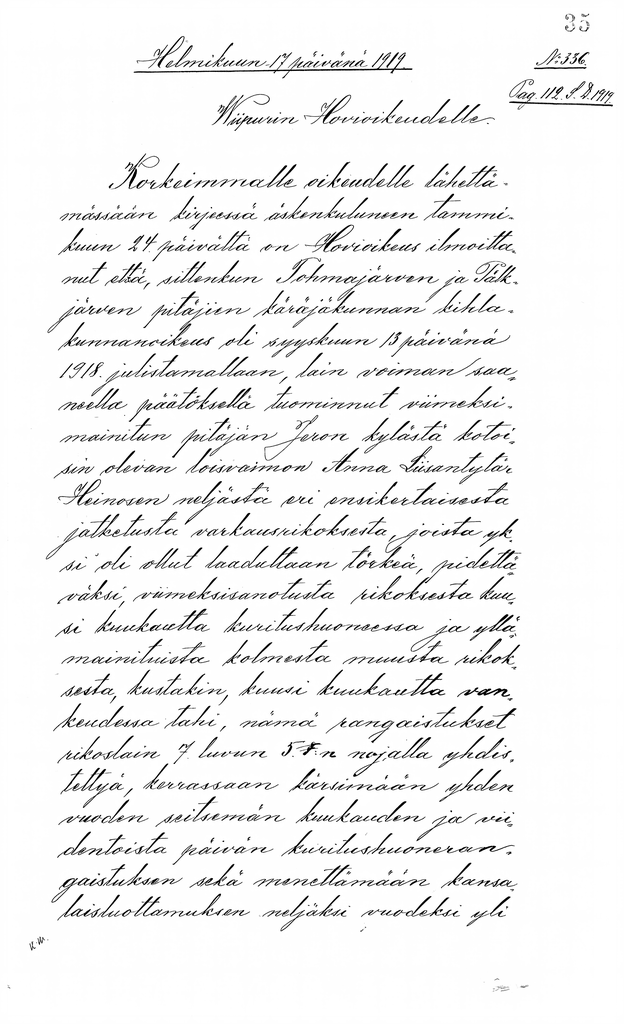 35
Helmikuun 17 päivänä 1919
No 336.
Pag. 112. S. D. 1919.
Wiipurin Hovioikeudelle.
Korkeimmalle oikeudelle lähettä-
mässään kirjeessä äskenkuluneen tammi-
kuun 24 päivältä on Hovioikeus ilmoitta-
nut että, sittenkun Tohmajärven ja Pälk-
järven pitäjien käräjäkunnan kihla-
kunnanoikeus oli syyskuun 13 päivänä
1918 julistamallaan, lain voiman saa-
neella päätöksellä tuominnut viimeksi-
mainitun pitäjän Jeron kylästä kotoi-
sin olevan loisvaimon Anna Liisantytär
Heinosen neljästä eri ensikertaisesta
jatketusta varkausrikoksesta, joista yk-
si oli ollut laadultaan törkeä, pidettä-
väksi, viimeksisanotusta rikoksesta kuu-
si kuukautta kuritushuoneessa ja yllä-
mainituista kolmesta muusta rikok-
sesta, kustakin, kuusi kuukautta van-
keudessa tahi, nämä rangaistukset
rikoslain 7 luvun 5 §:n nojalla yhdis-
tettyä, kerrassaan kärsimään yhden
vuoden seitsemän kuukauden ja vii-
dentoista päivän kuritushuoneran-
gaistuksen sekä menettämään kansa-
laisluottamuksen neljäksi vuodeksi yli
K.M.